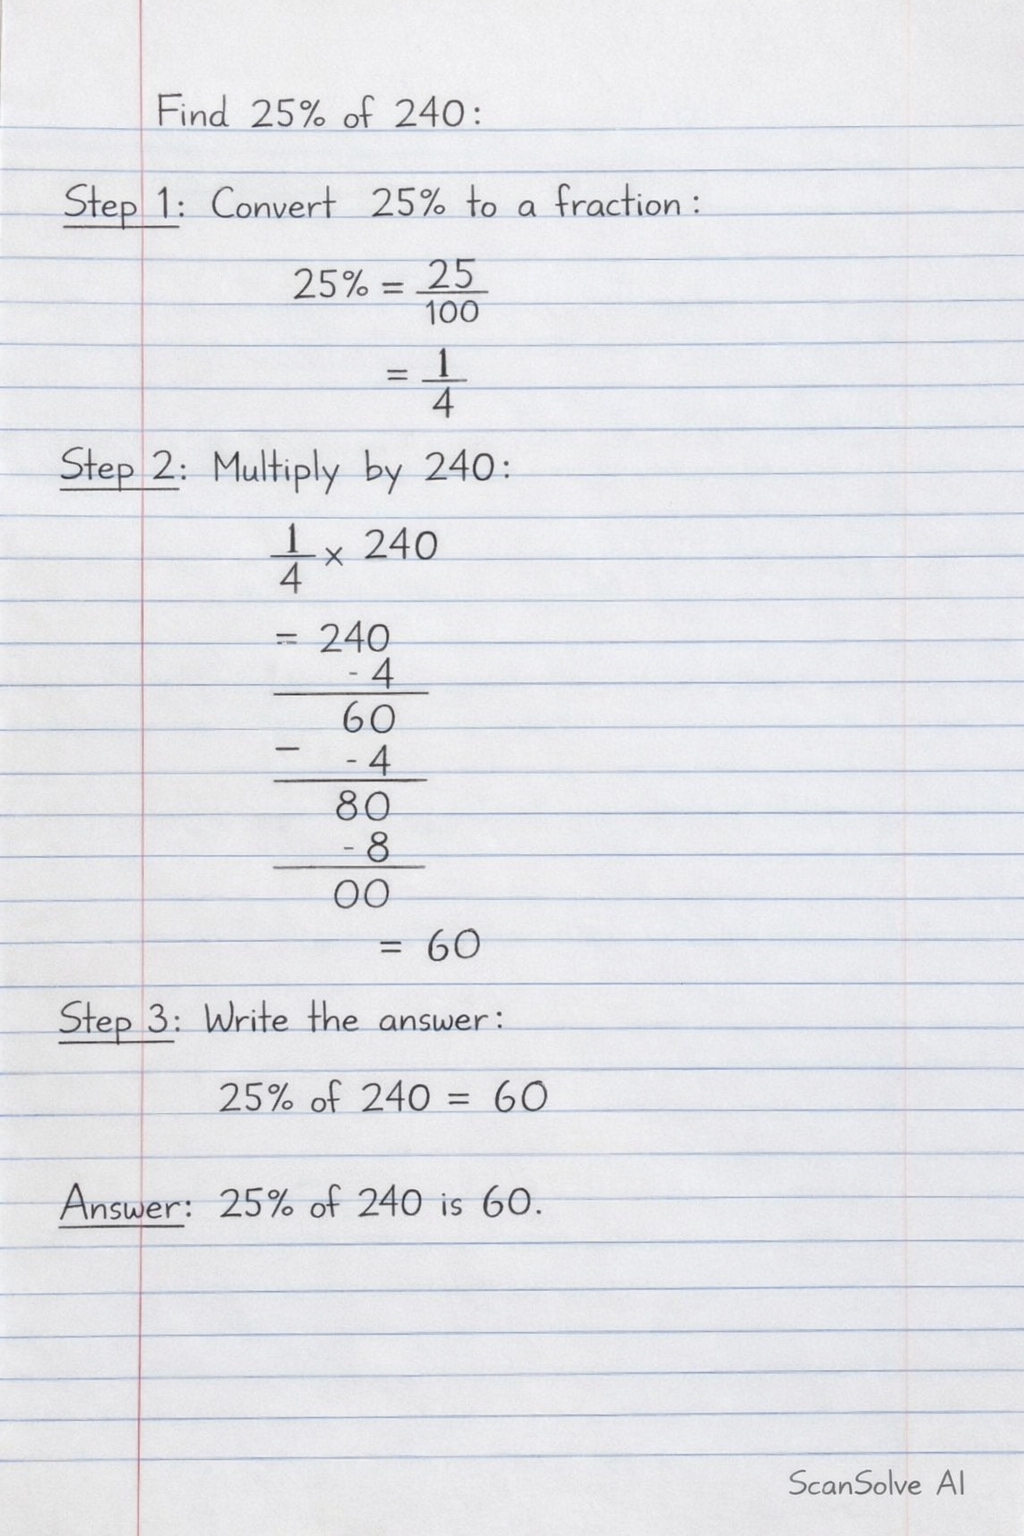 Find 25% of 240:
Step 1: Convert 25% to a fraction:
25% = 25/100
= 1/4
Step 2: Multiply by 240:
1/4 × 240
= 240
- 4
60
− - 4
80
- 8
00
= 60
Step 3: Write the answer:
25% of 240 = 60
Answer: 25% of 240 is 60.
ScanSolve AI